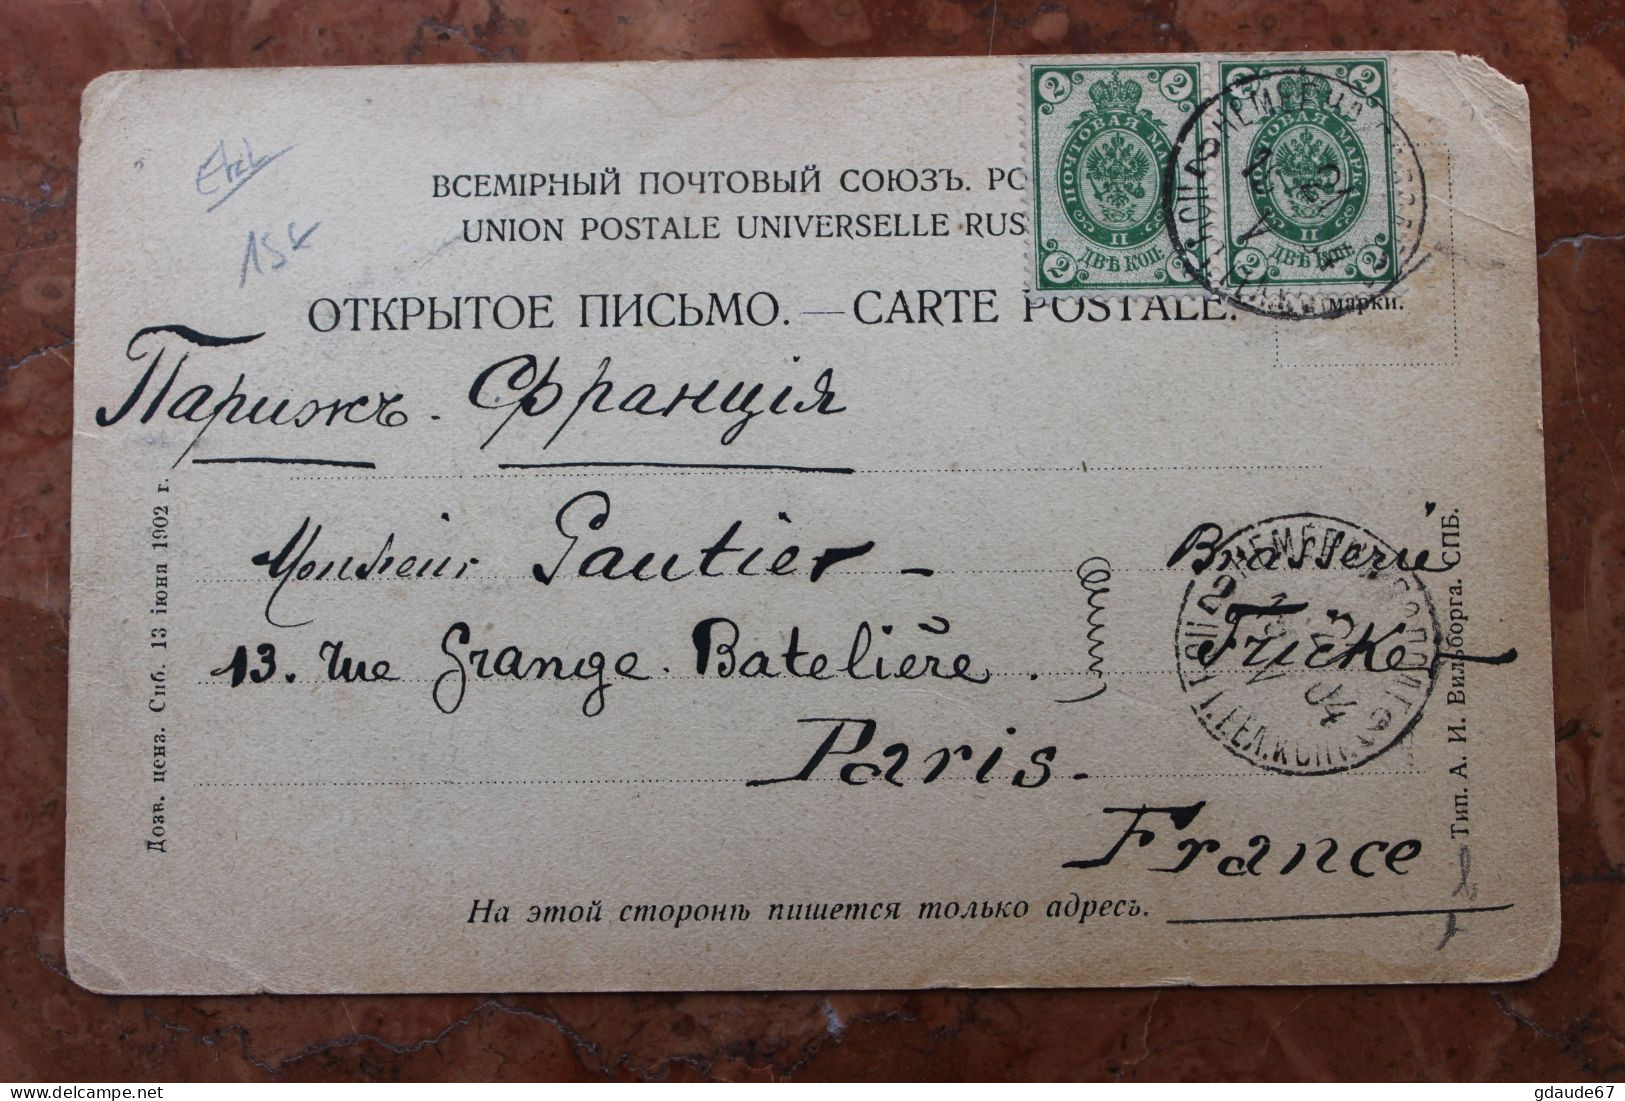 15€
ВСЕМІРНЫЙ ПОЧТОВЫЙ СОЮЗЪ. РО
UNION POSTALE UNIVERSELLE RUS
2 2
ПОЧТОВАЯ МА
II
ДВѢ КОП.
2 2
2 2
ПОЧТОВАЯ МАРКА
II
ДВѢ КОП.
2 2
ОТКРЫТОЕ ПИСЬМО. — CARTE POSTALE.
марки.
Парижъ. Франція
Monsieur Gautier – Brasserie
13. rue Grange. Batelière. Fricke
Paris.
France
На этой сторонѣ пишется только адресъ.
Дозв. ценз. Спб. 13 іюня 1902 г.
Тип. А. И. Вильборга. СПБ.
04
gdaude67